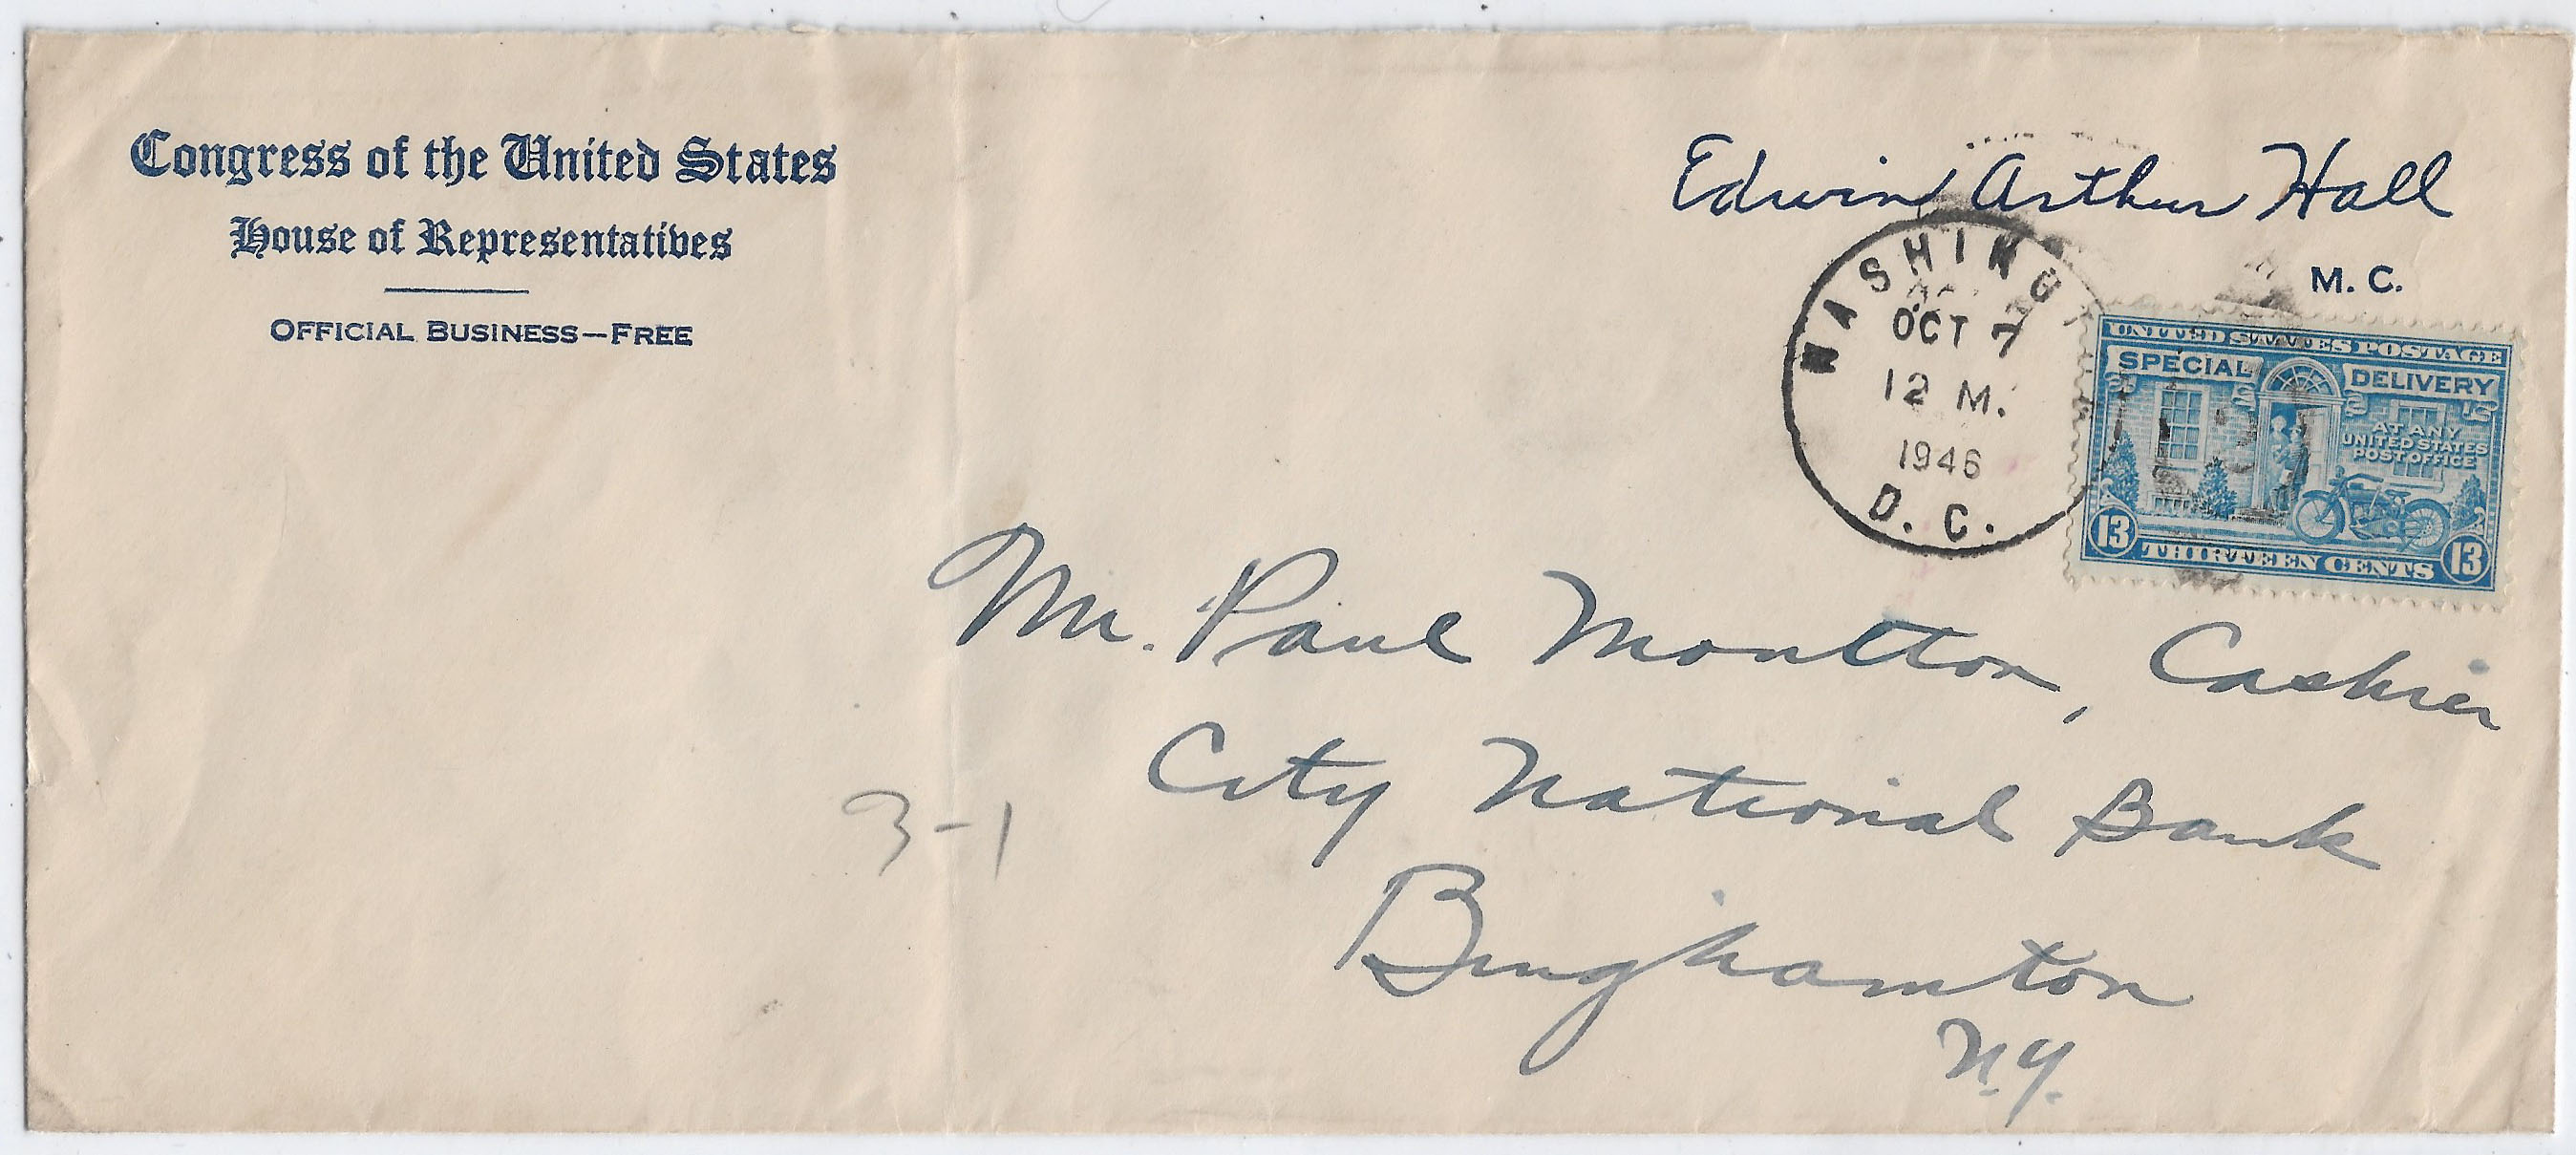 Congress of the United States
House of Representatives
OFFICIAL BUSINESS—FREE
Edwin Arthur Hall
M. C.
WASHING
OCT 7
12 M.
1946
D. C.
UNITED STATES POSTAGE
SPECIAL DELIVERY
AT ANY
UNITED STATES
POST OFFICE
13 THIRTEEN CENTS 13
Mr. Paul Moulton, Cashier
City National Bank
Binghamton
N.Y.
3-1